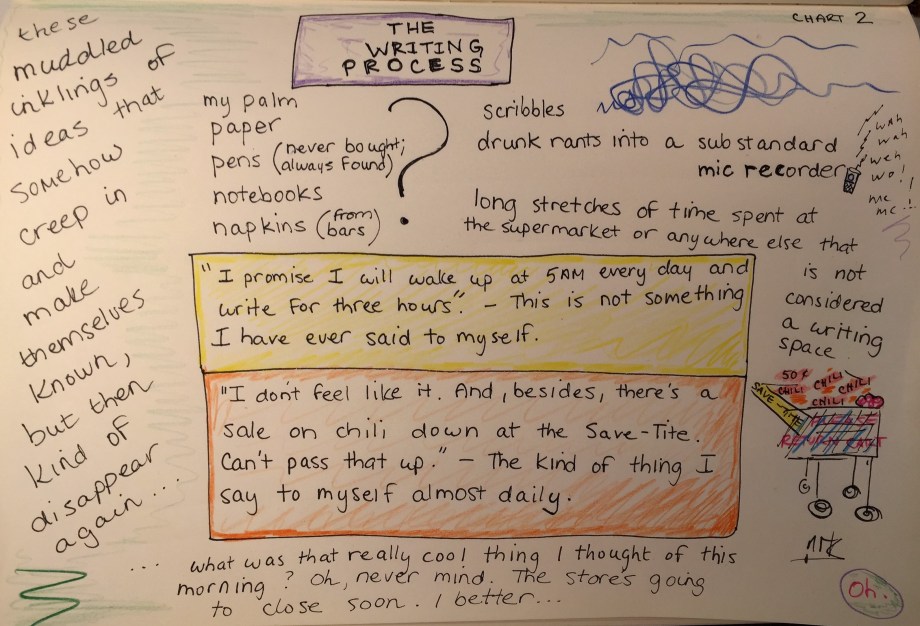 CHART 2
THE
WRITING
PROCESS
these
muddled
inklings of
ideas that
somehow
creep in
and
make
themselves
known,
but then
kind of
disappear
again...
my palm
paper
pens (never bought;
always found)
notebooks
napkins (from
bars)
?
scribbles
drunk rants into a substandard
mic recorder
wah
wah
weh
wo!
me
me!!
long stretches of time spent at
the supermarket or anywhere else that
is not
considered
a writing
space.
"I promise I will wake up at 5AM every day and
write for three hours". - This is not something
I have ever said to myself.
"I don't feel like it. And, besides, there's a
sale on chili down at the Save-Tite.
Can't pass that up." - The kind of thing I
say to myself almost daily.
50¢
CHILI CHILI
CHILI
CHILI
SAVE-TITE
RETURN CART
... what was that really cool thing I thought of this
morning? Oh, never mind. The store's going
to close soon. I better...
Oh.